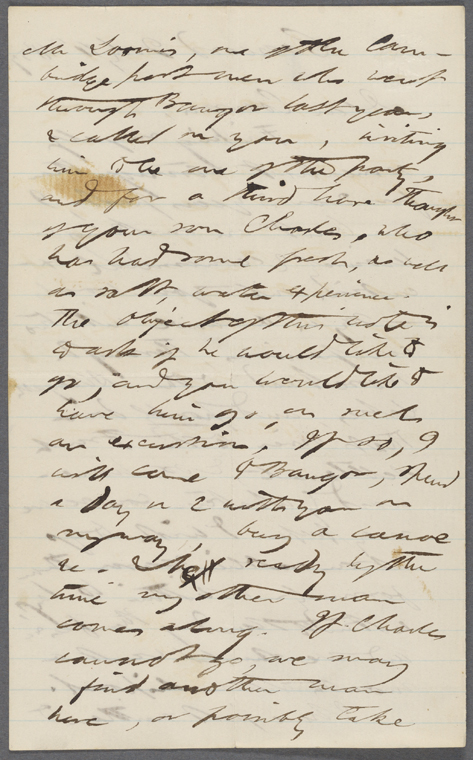 Mr Loomis, one of the Cam-
bridge port men who went
through Bangor last year,
& called on you, inviting
him to be one of the party,
and for a third have thought
of your son Charles, who
has had some fresh, as well
as salt, water experience.
The object of this note is
to ask if he would like to
go, and you would like to
have him go, on such
an excursion. If so, I
will come to Bangor, spend
a day or 2 with you on
my way, buy a canoe
&c. & be ready by the
time my other man
comes along. If Charles
cannot go, we may
find another man
here, or possibly take